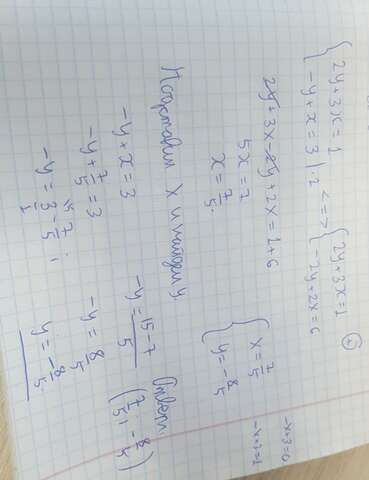 { 2y+3x=1
-y+x=3 |·2 <=> { 2y+3x=1
-2y+2x=6 (+)
2y+3x-2y+2x=1+6
5x=7
x=7/5.
Подставим x и найдём y
-y+x=3
-y+7/5=3
-y=3/1-7/5;
-y=15-7/5
-y=8/5
y=-8/5
{ x=7/5
y=-8/5
Ответ (7/5; -8/5)